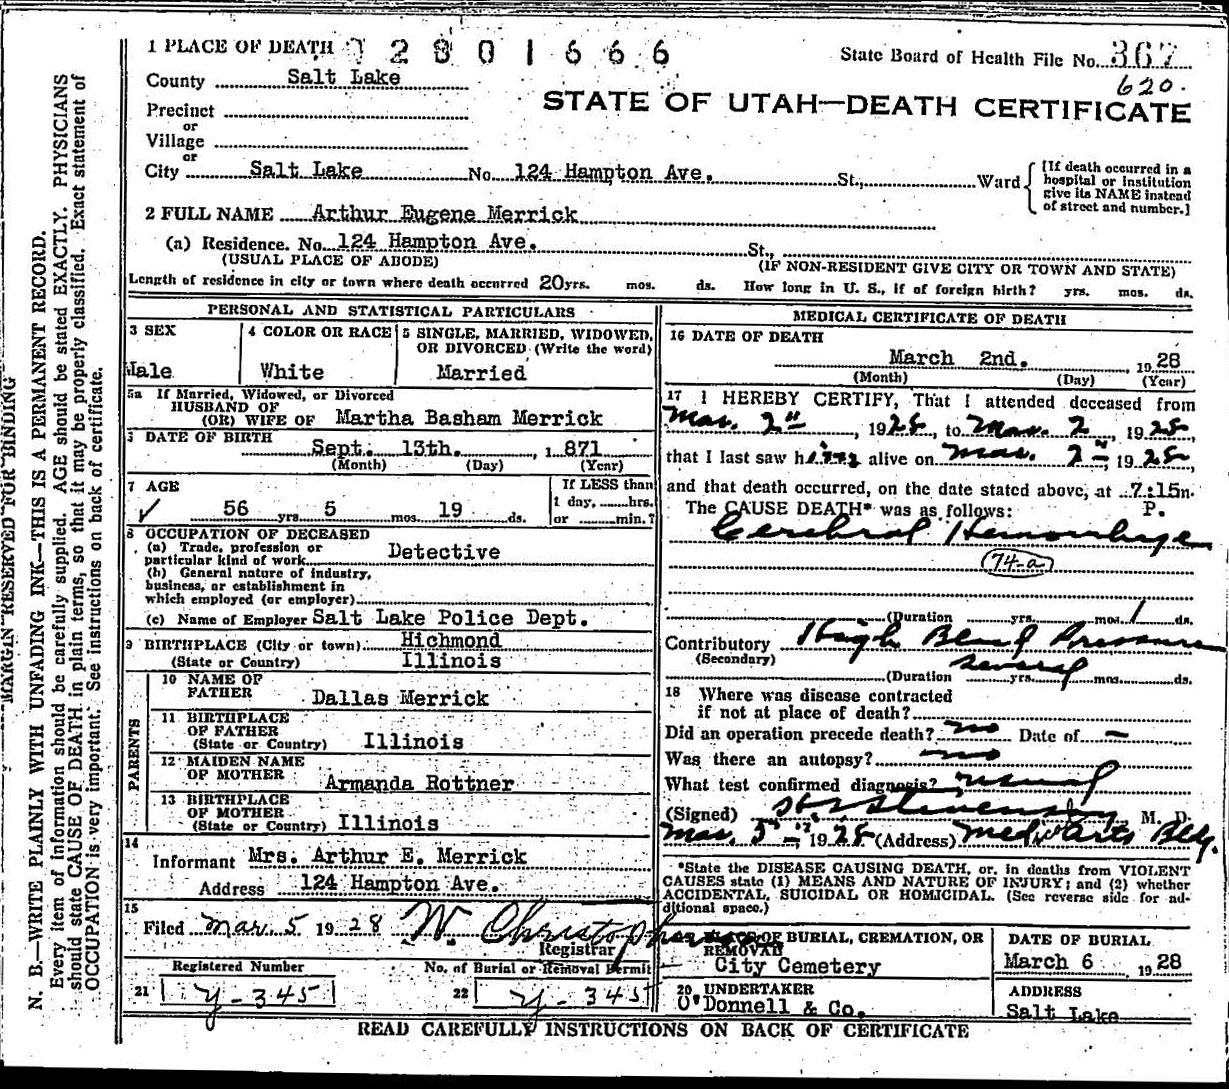 1 PLACE OF DEATH 2801666
State Board of Health File No. 367
620.
County Salt Lake
STATE OF UTAH—DEATH CERTIFICATE
Precinct
or
Village
or
City Salt Lake No. 124 Hampton Ave. St., Ward
[If death occurred in a
hospital or institution
give its NAME instead
of street and number.]
2 FULL NAME Arthur Eugene Merrick
(a) Residence. No. 124 Hampton Ave. St.,
(USUAL PLACE OF ABODE) (IF NON-RESIDENT GIVE CITY OR TOWN AND STATE)
Length of residence in city or town where death occurred 20 yrs. mos. ds. How long in U. S., if of foreign birth? yrs. mos. ds.
PERSONAL AND STATISTICAL PARTICULARS
3 SEX
Male
4 COLOR OR RACE
White
5 SINGLE, MARRIED, WIDOWED,
OR DIVORCED (Write the word)
Married
5a If Married, Widowed, or Divorced
HUSBAND OF
(OR) WIFE OF Martha Basham Merrick
6 DATE OF BIRTH
Sept. 13th. , 1 871
(Month) (Day) (Year)
7 AGE
56 yrs. 5 mos. 19 ds.
If LESS than
1 day, hrs.
or min.?
8 OCCUPATION OF DECEASED
(a) Trade, profession or
particular kind of work Detective
(b) General nature of industry,
business, or establishment in
which employed (or employer)
(c) Name of Employer Salt Lake Police Dept.
9 BIRTHPLACE (City or town) Hichmond
(State or Country) Illinois
PARENTS
10 NAME OF
FATHER Dallas Merrick
11 BIRTHPLACE
OF FATHER
(State or Country) Illinois
12 MAIDEN NAME
OF MOTHER Armanda Rottner
13 BIRTHPLACE
OF MOTHER
(State or Country) Illinois
14
Informant Mrs. Arthur E. Merrick
Address 124 Hampton Ave.
15
Filed Mar. 5 1928 W. Christopherson
Registrar
Registered Number
21 y-345
No. of Burial or Removal Permit
22 y-345
MEDICAL CERTIFICATE OF DEATH
16 DATE OF DEATH
March 2nd. , 19 28
(Month) (Day) (Year)
17 I HEREBY CERTIFY, That I attended deceased from
Mar. 2", 1928, to Mar. 2, 1928,
that I last saw him alive on Mar. 2, 1928,
and that death occurred, on the date stated above, at 7:15m.
The CAUSE DEATH* was as follows: P.
Cerebral Hemorrhage
74-a
(Duration yrs. mos. 1 ds.
Contributory High Blood Pressure
(Secondary)
(Duration several yrs. mos. ds.
18 Where was disease contracted
if not at place of death?
Did an operation precede death? no Date of —
Was there an autopsy? no
What test confirmed diagnosis? usual
(Signed) Stevenson M. D.
Mar. 5 1928 (Address) Medic Arts Bldg.
*State the DISEASE CAUSING DEATH, or, in deaths from VIOLENT
CAUSES state (1) MEANS AND NATURE OF INJURY; and (2) whether
ACCIDENTAL, SUICIDAL OR HOMICIDAL. (See reverse side for ad-
ditional space.)
PLACE OF BURIAL, CREMATION, OR
REMOVAL
City Cemetery
DATE OF BURIAL
March 6 , 19 28
20 UNDERTAKER
O'Donnell & Co.
ADDRESS
Salt Lake
READ CAREFULLY INSTRUCTIONS ON BACK OF CERTIFICATE
MARGIN RESERVED FOR BINDING
N. B.—WRITE PLAINLY WITH UNFADING INK—THIS IS A PERMANENT RECORD.
Every item of information should be carefully supplied. AGE should be stated EXACTLY. PHYSICIANS
should state CAUSE OF DEATH in plain terms, so that it may be properly classified. Exact statement of
OCCUPATION is very important. See instructions on back of certificate.